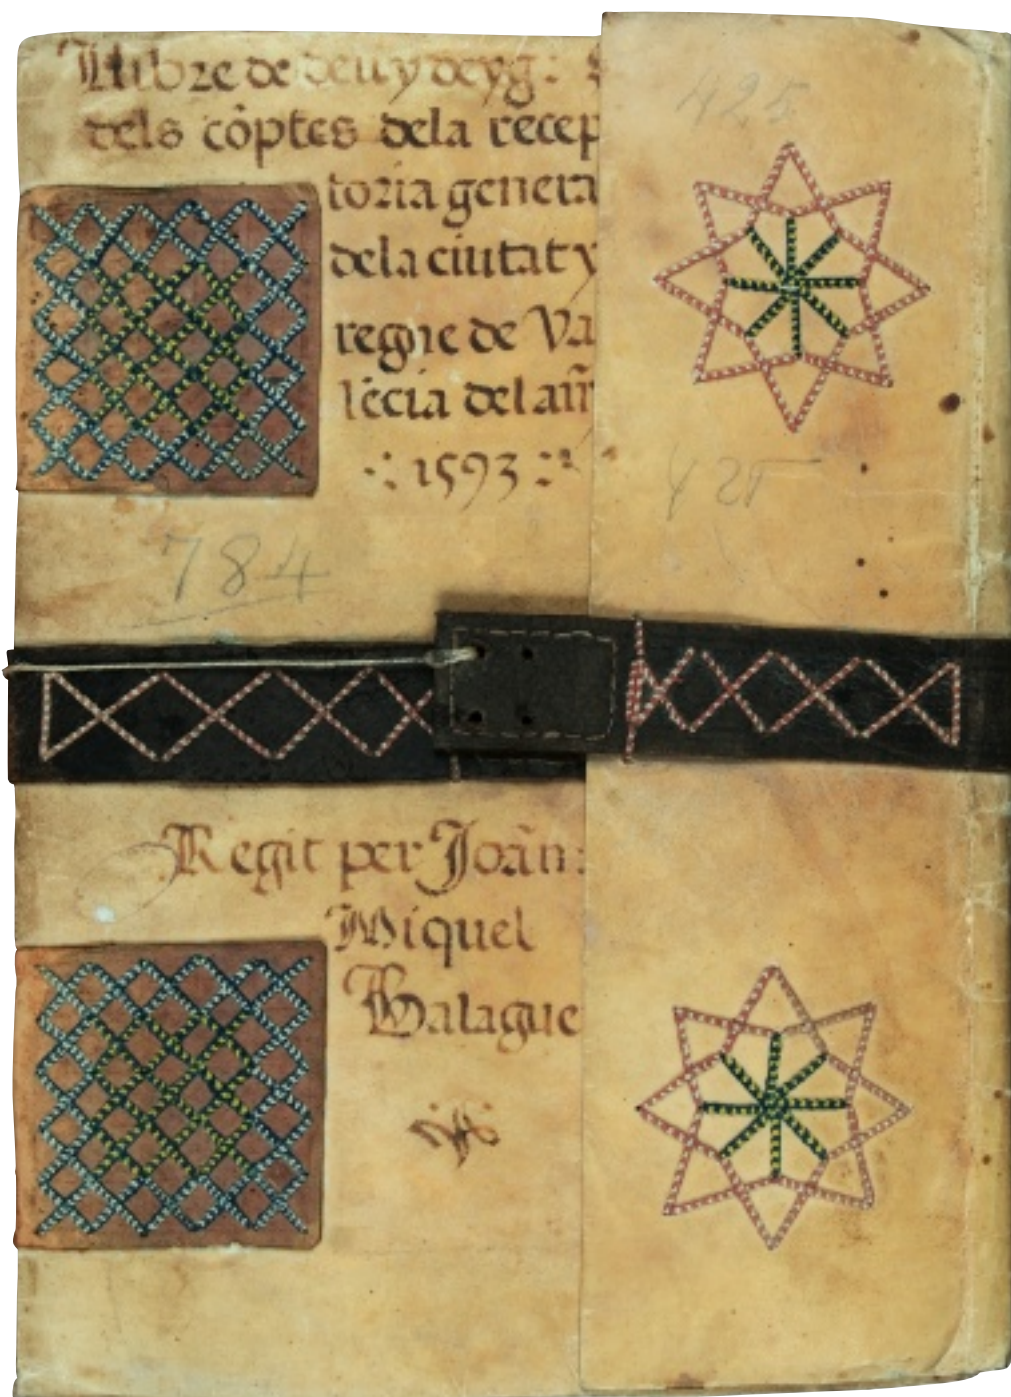 Llibre de deu y deyg:
dels cõptes dela r̃ecep
toria genera
dela ciutat y
regne de Va
lẽcia del añ
1593
425
425
784
Regit per Joãn:
Miquel
Balague